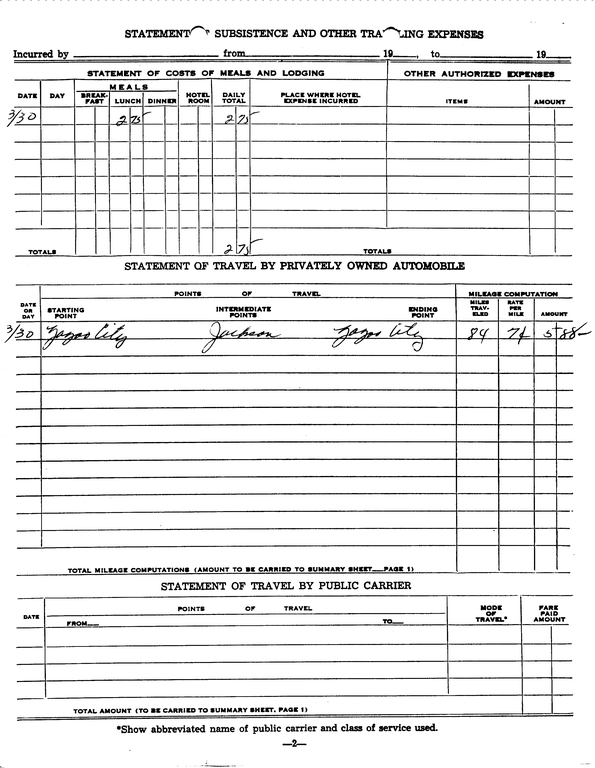 STATEMENT SUBSISTENCE AND OTHER TRA LING EXPENSES
Incurred by from 19 , to 19
STATEMENT OF COSTS OF MEALS AND LODGING OTHER AUTHORIZED EXPENSES
DATE DAY MEALS BREAK-FAST LUNCH DINNER HOTEL ROOM DAILY TOTAL PLACE WHERE HOTEL EXPENSE INCURRED ITEMS AMOUNT
3/30 2 75 2 75
TOTALS 2 75 TOTALS
STATEMENT OF TRAVEL BY PRIVATELY OWNED AUTOMOBILE
POINTS OF TRAVEL MILEAGE COMPUTATION
DATE OR DAY STARTING POINT INTERMEDIATE POINTS ENDING POINT MILES TRAV-ELED RATE PER MILE AMOUNT
3/30 Yazoo City Jackson Yazoo City 84 7¢ 5 88
TOTAL MILEAGE COMPUTATIONS (AMOUNT TO BE CARRIED TO SUMMARY SHEET—PAGE 1)
STATEMENT OF TRAVEL BY PUBLIC CARRIER
DATE POINTS OF TRAVEL MODE OF TRAVEL* FARE PAID AMOUNT
FROM— TO—
TOTAL AMOUNT (TO BE CARRIED TO SUMMARY SHEET, PAGE 1)
*Show abbreviated name of public carrier and class of service used.
—2—